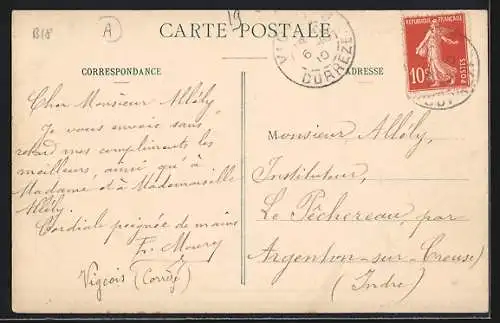 B18
A
19
CARTE POSTALE
CORRESPONDANCE
ADRESSE
CORREZE
REPUBLIQUE FRANÇAISE
10c
POSTES
Cher Monsieur Allély
Je vous envoie sans
retard mes compliments les
meilleurs, ainsi qu'à
Madame et à Mademoiselle
Allély.
Cordiale poignée de mains
Fr. Moury
Vigeois (Corrèze)
Monsieur Allély,
Instituteur,
Le Pêchereau, par
Argenton-sur-Creuse
(Indre)